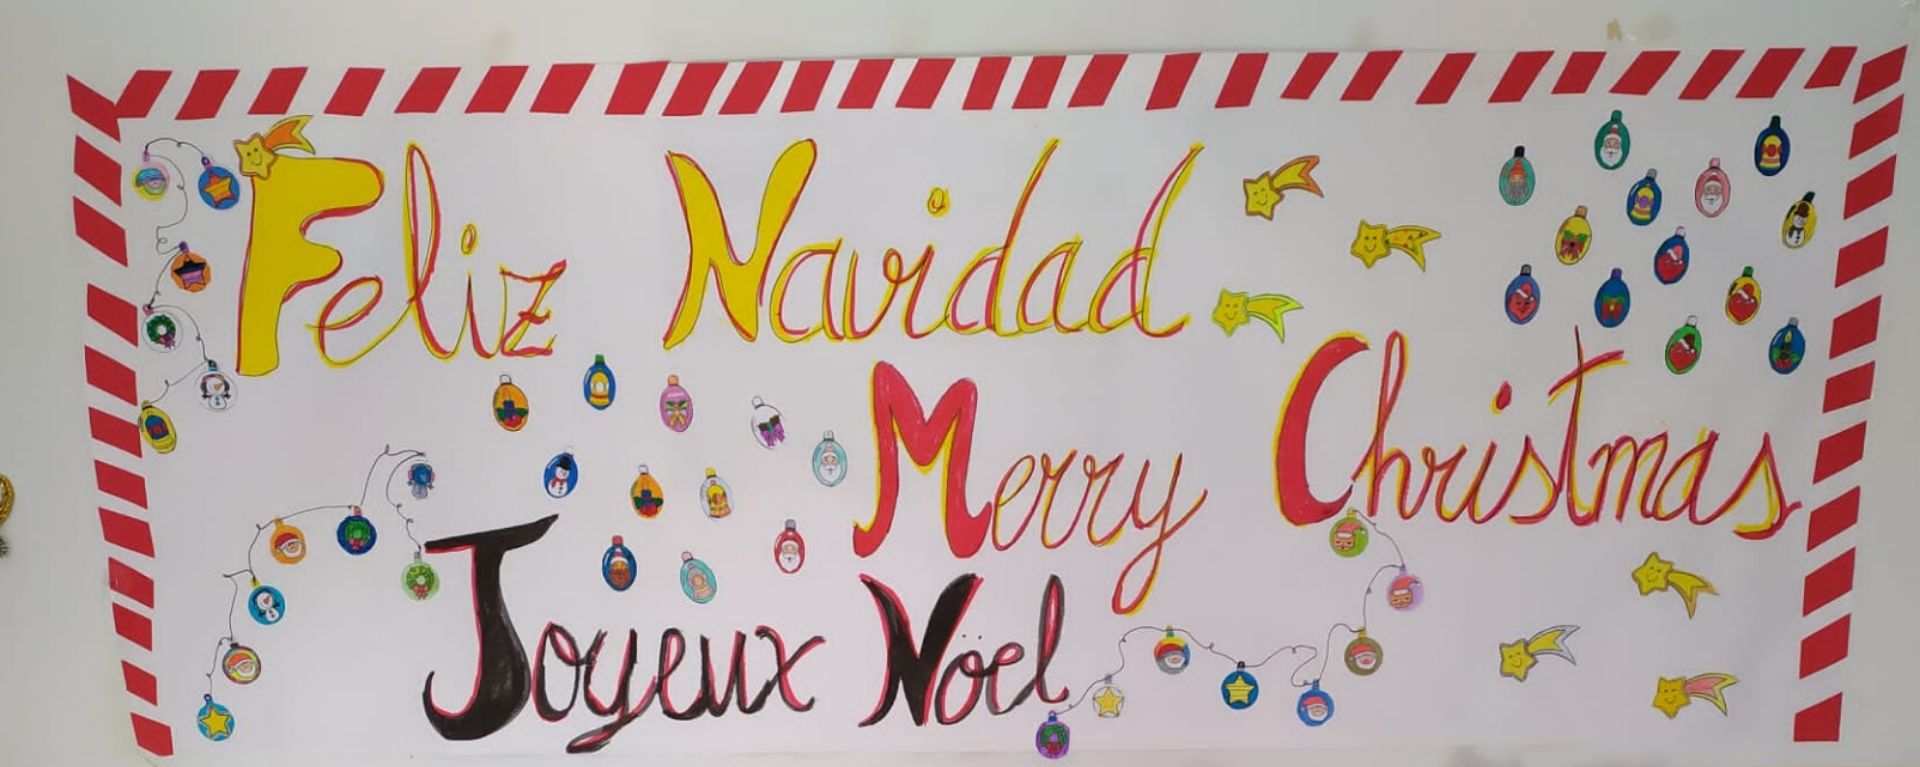 Feliz Navidad
Merry Christmas
Joyeux Nöel